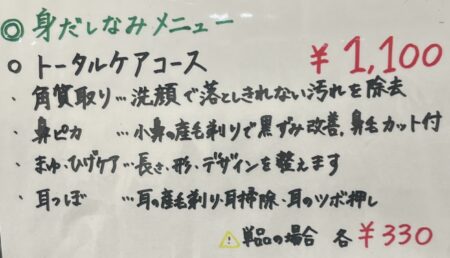 ◎ 身だしなみメニュー
○ トータルケアコース ¥1,100
・角質取り…洗顔で落としきれない汚れを除去
・鼻ピカ …小鼻の産毛剃りで黒ずみ改善、鼻毛カット付
・まゆ、ひげケア…長さ、形、デザインを整えます
・耳つぼ …耳の産毛剃り・耳掃除、耳のツボ押し
⚠ 単品の場合 各¥330